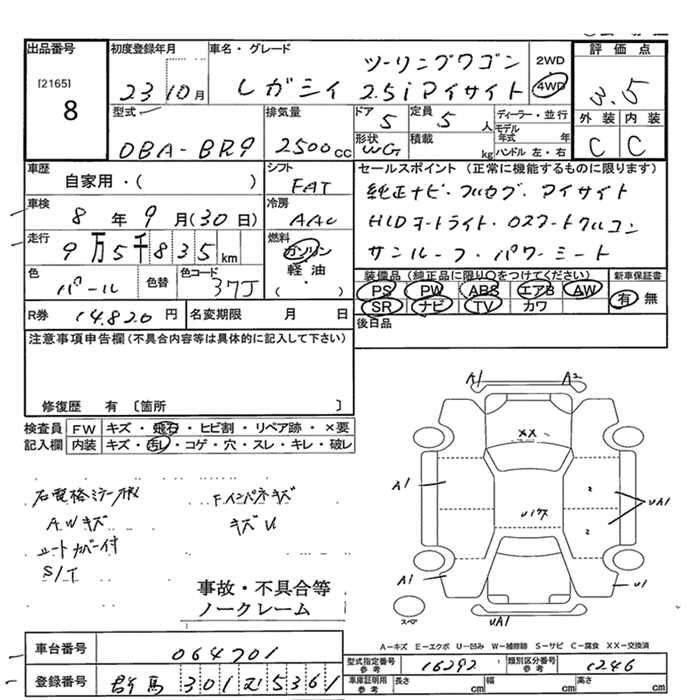 出品番号
[2165]
8
初度登録年月
23 10月
車名・グレード
ツーリングワゴン
レガシィ 2.5iアイサイト
2WD
4WD
評価点
3.5
外装 内装
C C
型式
DBA-BR9
排気量
2500cc
ドア 5
形状 WG
定員 5 人
積載 kg
ディーラー・並行
モデル年式 年
ハンドル 左・右
車歴
自家用・( )
シフト
FAT
車検
8年9月(30日)
冷房
AAC
走行
9万5千835km
燃料
ガソリン
軽油
・
( )
色
パール
色替
色コード
37J
セールスポイント(正常に機能するものに限ります)
純正ナビ・フルセグ・アイサイト
HIDオートライト・Dスマートクルコン
サンルーフ・パワーシート
装備品(純正品に限り○をつけてください)
PS PW ABS エアB AW
SR ナビ TV カワ
新車保証書
有 無
後日品
R券 14,820円
名変期限 月 日
注意事項申告欄(不具合内容等は具体的に記入して下さい)
修復歴 有〔箇所 〕
検査員記入欄
FW キズ・飛石・ヒビ割・リペア跡・×要
内装 キズ・汚レ・コゲ・穴・スレ・キレ・破レ
AWキズ
シートカバー付
S/T
Fインパネキズ
キズU
事故・不具合等
ノークレーム
A1 A2
XX
A1
Uパワス
UA1
A1
U1
UA1
スペア
A-キズ E-エクボ U-凹み W-補修跡 S-サビ C-腐食 XX-交換済
車台番号 064701
登録番号 群馬 301 む 5361
型式指定番号 参考 16292
類別区分番号 参考 1246
車庫証明用 参考 長さ cm 幅 cm 高さ cm